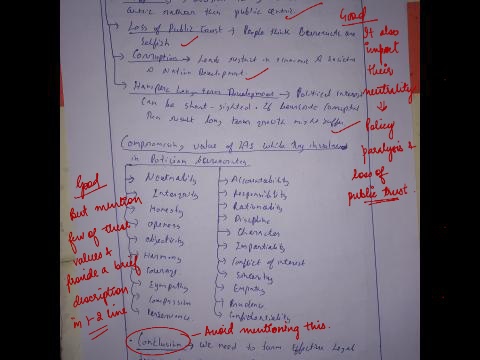 centric rather than public centric
Loss of Public Trust → People think Bureaucrats are
selfish
Corruption → Leads
& Nation Development
Hampers Long term Development → Political interest
can be short-sighted. If bureaucrats corrupted
then result long term growth might suffer
Compromising value of IAS while they involved
in Politician bureaucrats
Neutrality
Integrity
Honesty
openness
objectivity
Harmony
Courage
Sympathy
Compassion
Perseverance
Accountability
Responsibility
Rationality
Discipline
Character
Impartiality
Conflict of interest
Sincerity
Empathy
Prudence
Confidentiality
Conclusion → We need to form Effective Legal
Good
It also
import
their
neutrality
Policy
paralysis &
loss of
public trust.
Good
But mention
few of trust
values &
provide a brief
description
in 1-2 line
Avoid mentioning this.